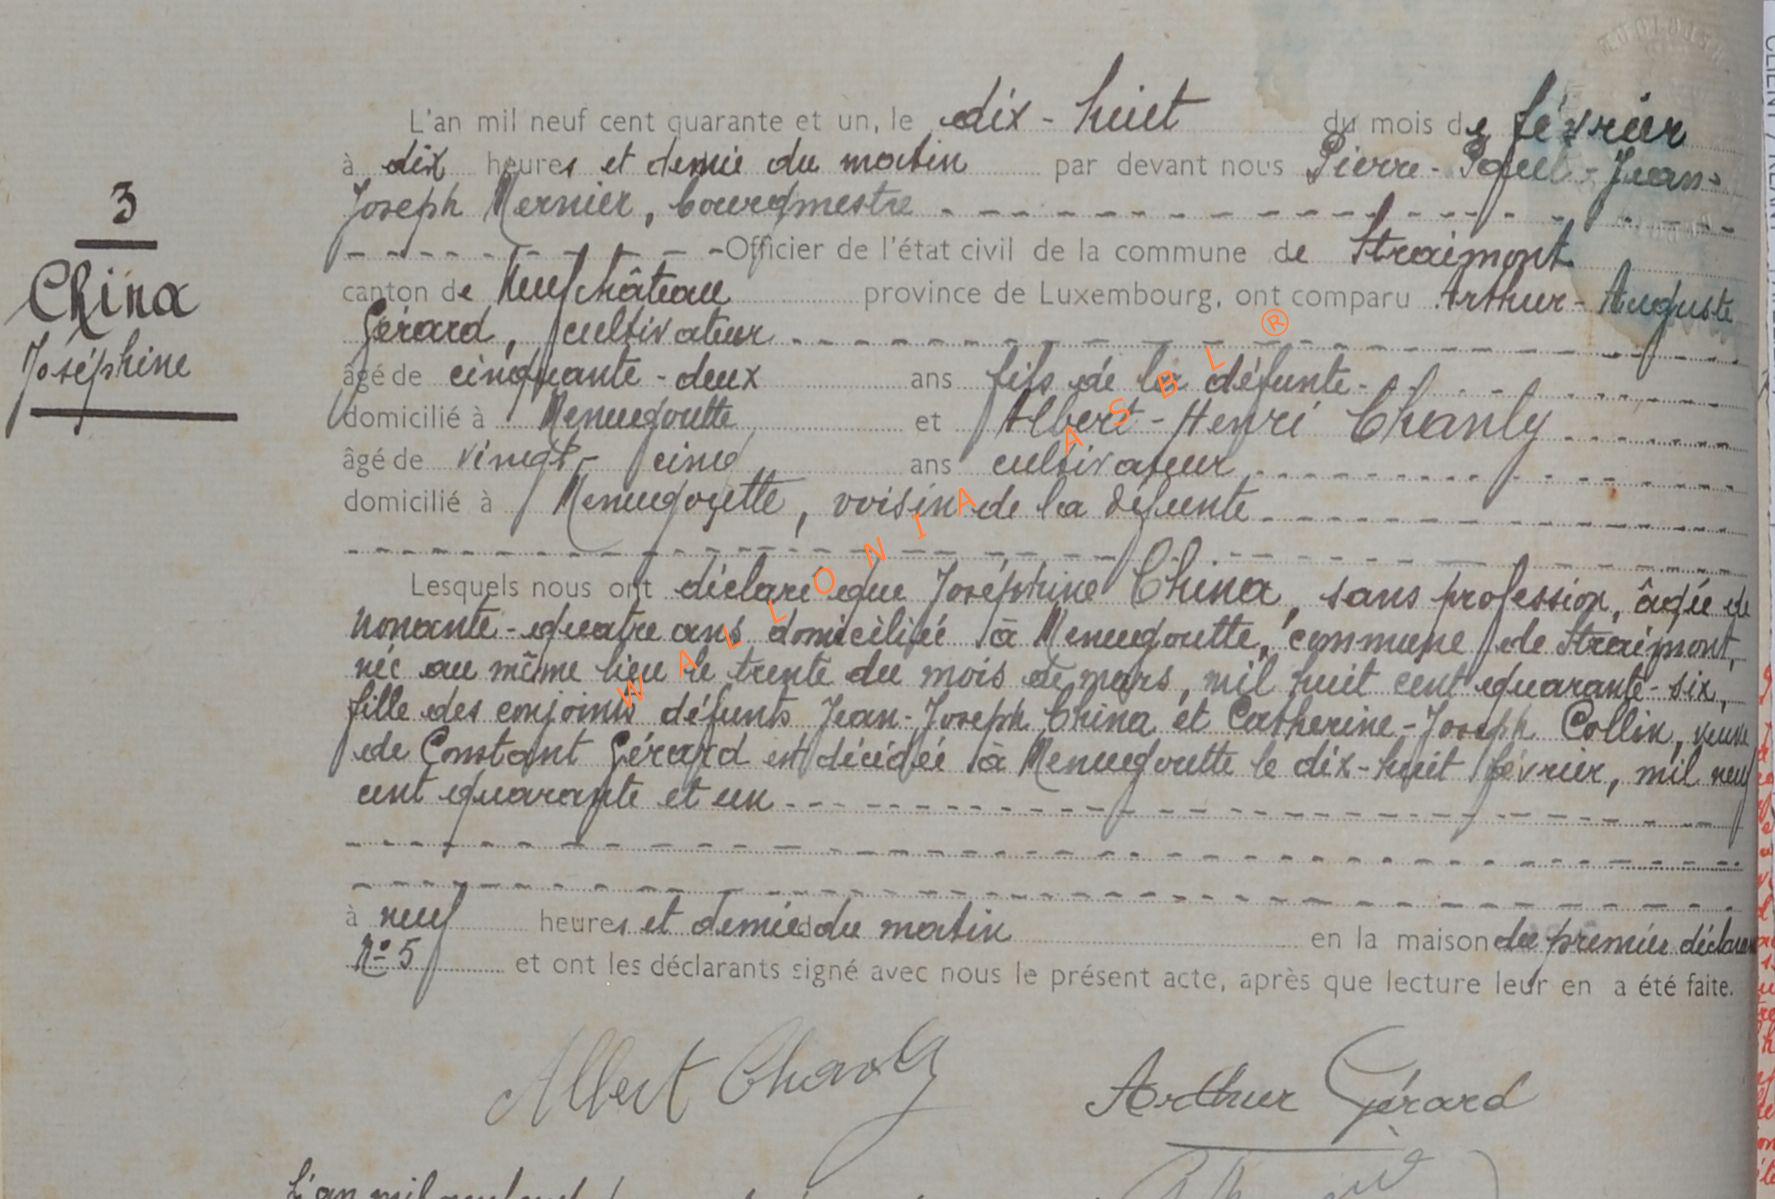 L'an mil neuf cent quarante et un, le dix-huit du mois de février
à dix heures et demie du matin par devant nous Pierre-Paul-Jean-
Joseph Mernier, bourgmestre
Officier de l'état civil de la commune de Straimont
canton de Neufchâteau province de Luxembourg, ont comparu Arthur-Auguste
Gérard, cultivateur
âgé de cinquante-deux ans fils de la défunte
domicilié à Menugoutte et Albert-Henri Chanly
âgé de vingt-cinq ans cultivateur
domicilié à Menugoutte, voisin de la défunte
3
China
Joséphine
Lesquels nous ont déclaré que Joséphine China, sans profession, âgée de
nonante-quatre ans domiciliée à Menugoutte, commune de Straimont,
née au même lieu le trente du mois de mars, mil huit cent quarante-six,
fille des conjoints défunts Jean-Joseph China et Catherine-Joseph Collin, veuve
de Constant Gérard est décédée à Menugoutte le dix-huit février, mil neuf
cent quarante et un
à neuf heures et demie du matin en la maison du premier déclarant
N° 5 et ont les déclarants signé avec nous le présent acte, après que lecture leur en a été faite.
Albert Chanly Arthur Gérard
L'an mil
WALLONIA ASBL ®